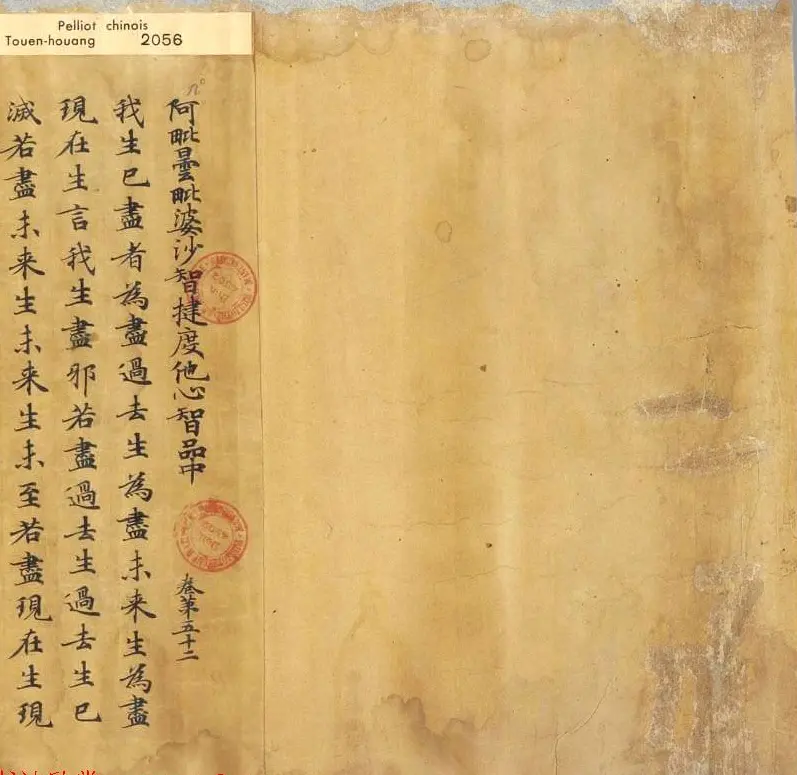 Pelliot chinois
Touen-houang 2056
阿毗曇毗婆沙智揵度他心智品中 卷第五十二
我生已盡者為盡過去生為盡未来生為盡
現在生言我生盡邪若盡過去生過去生已
滅若盡未来生未来生未至若盡現在生現